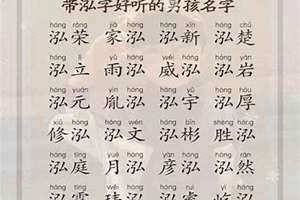 带泓字好听的男孩名字
hóng róng jiā hóng hóng xīn hóng chǔ
泓荣 家泓 泓新 泓楚
hóng lì yǔ hóng wēi hóng hóng yán
泓立 雨泓 威泓 泓岩
hóng yuán yìn hóng hóng yǔ hóng hòu
泓元 胤泓 泓宇 泓厚
xiū hóng hóng wén hóng bīn shèng hóng
修泓 泓文 泓彬 胜泓
hóng tíng yuè hóng yàn hóng hóng rán
泓庭 月泓 彦泓 泓然
泓 泓 泓睿 泓